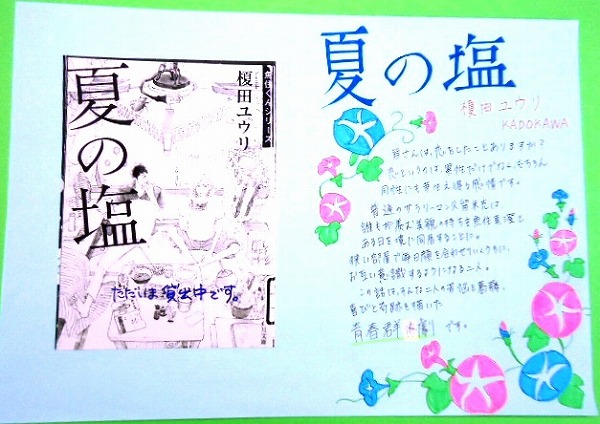 夏の塩
榎田ユウリ
魚住くんシリーズ
ただいま貸出中です。
夏の塩
榎田ユウリ
KADOKAWA
皆さんは、恋をしたことありますか?
恋というのは、異性だけでなく、もちろん
同性にも芽生え得る感情です。
普通のサラリーマン久留米充は、
誰もが羨む美貌の持ち主魚住真澄と
ある日を境に同居することに。
狭い部屋で毎日顔を合わせていくうちに、
お互い意識するようになる二人。
この話は、そんな二人の苦悩と葛藤、
喜びと奇跡を描いた
青春群像劇です。